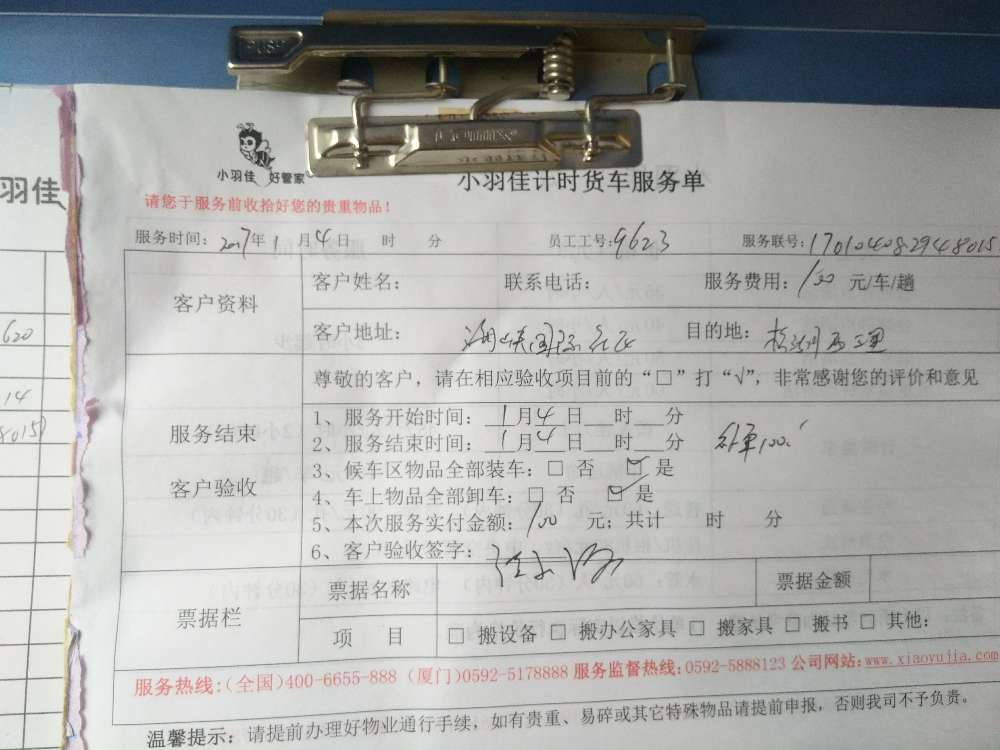 小羽佳 好管家
小羽佳计时货车服务单
羽佳
请您于服务前收拾好您的贵重物品！
服务时间：2017年1月4日 时 分 员工工号：9623 服务联号：17010408294 8015
客户资料
客户姓名： 联系电话： 服务费用：130 元/车/趟
客户地址： 国际 目的地：
620
尊敬的客户，请在相应验收项目前的“□”打“√”，非常感谢您的评价和意见
14
8015
服务结束
客户验收
1、服务开始时间：1月4日 时 分
2、服务结束时间：1月4日 时 分
3、候车区物品全部装车：□ 否 ☑ 是
4、车上物品全部卸车：□ 否 ☑ 是
5、本次服务实付金额：100 元；共计 时 分
6、客户验收签字：
票据栏
票据名称 票据金额
项 目 □ 搬设备 □ 搬办公家具 □ 搬家具 □ 搬书 □ 其他：
服务热线：(全国)400-6655-888 (厦门)0592-5178888 服务监督热线：0592-5888123 公司网站：www.xiaoyujia.com
温馨提示：请提前办理好物业通行手续，如有贵重、易碎或其它特殊物品请提前申报，否则我司不予负责。